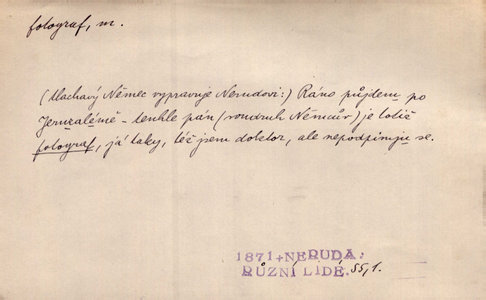 fotograf, m.
(tlachavý Němec vypravuje Nerudovi:) Ráno půjdem po
Jeruzalémě - tenhle pán (soudruh Němcův) je totiž
fotograf, já taky, též jsem doktor, ale nepodpisuju se.
1871+NERUDA:
RŮZNÍ LIDÉ. 55,1.